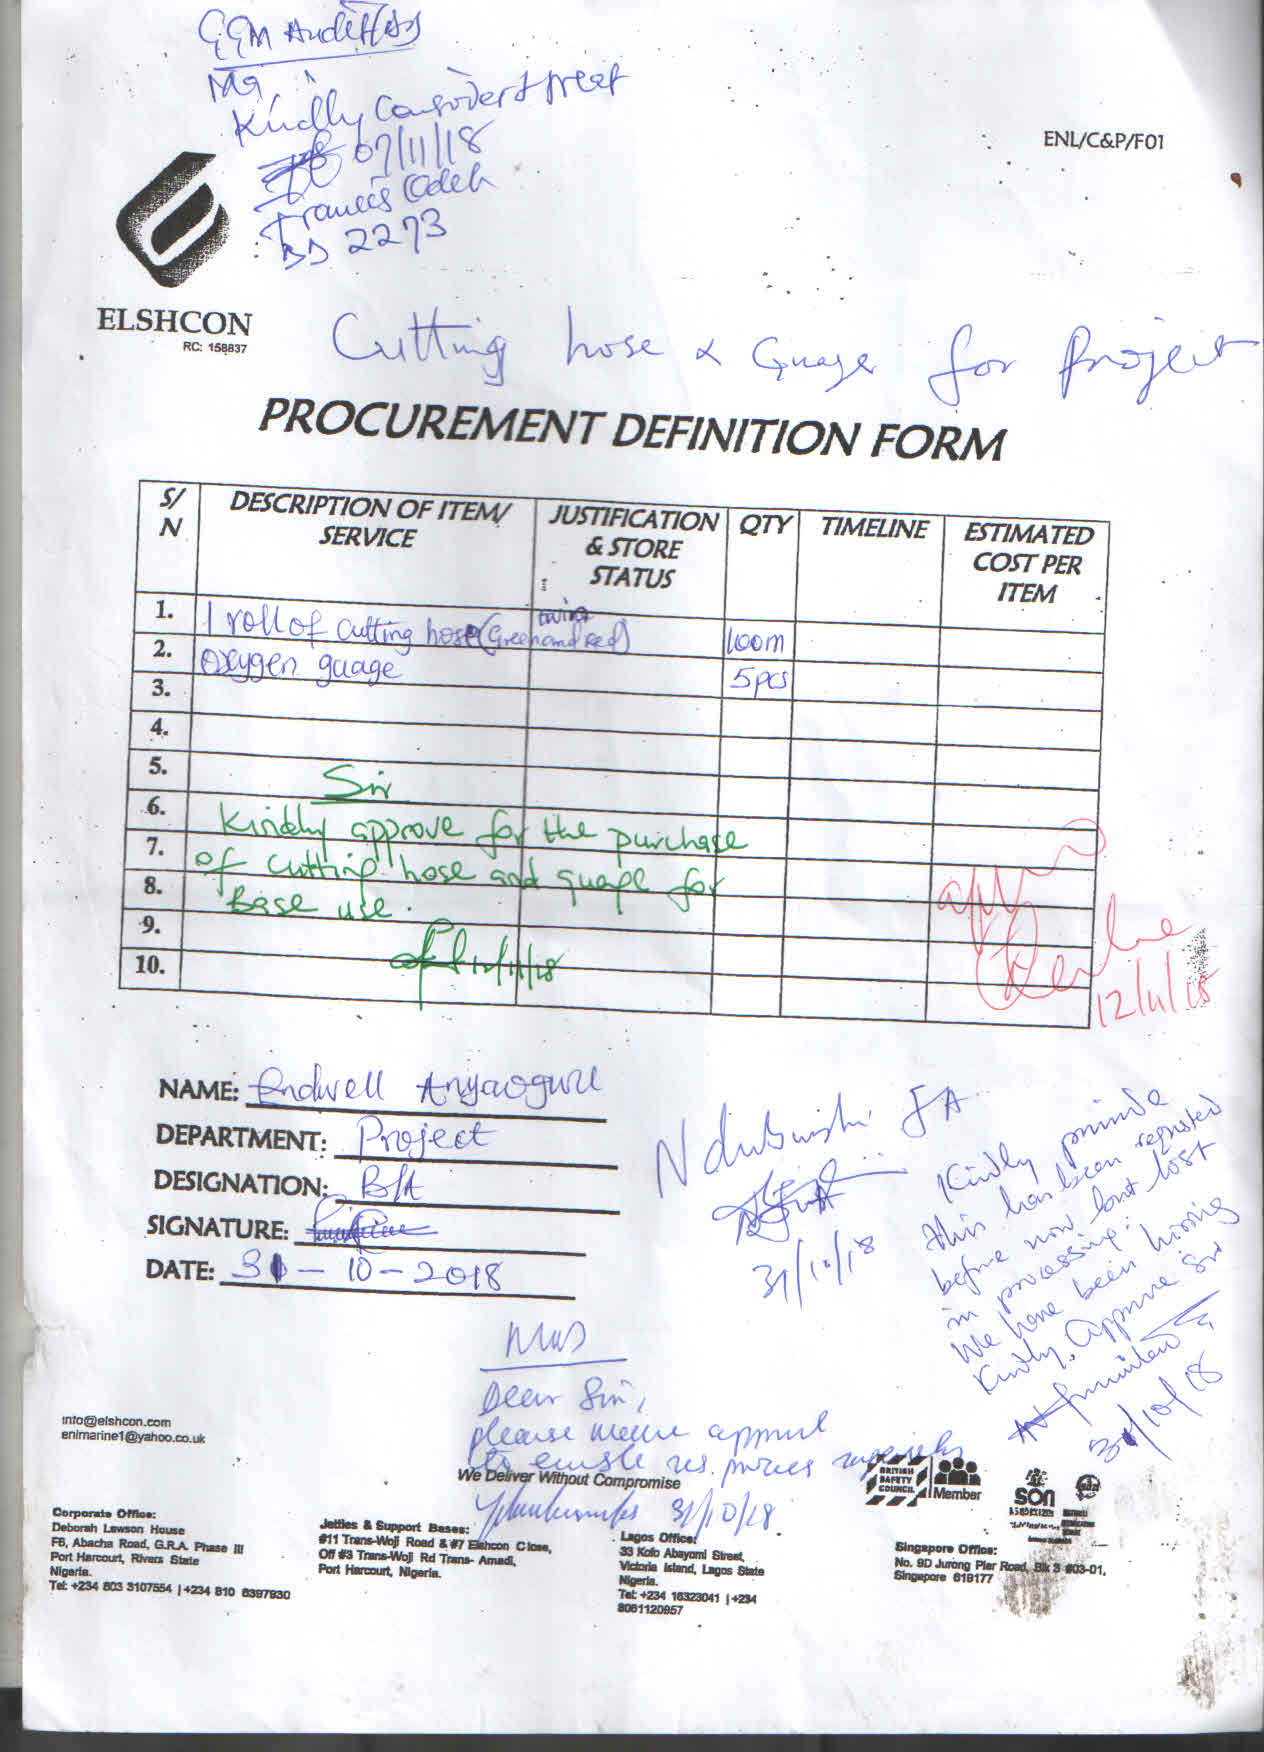 GGM Audit/
Kindly Consider & treat
07/11/18
Francis Odeh
2273
ENL/C&P/F01
ELSHCON
RC: 158837
Cutting hose & Guage for Project
PROCUREMENT DEFINITION FORM
S/N DESCRIPTION OF ITEM/ SERVICE JUSTIFICATION & STORE STATUS QTY TIMELINE ESTIMATED COST PER ITEM
1. 1 roll of cutting hose (Green and Red) twins 100m
2. Oxygen guage 5pcs
3.
4.
5.
Sir
6.
Kindly approve for the purchase
7.
of cutting hose and guage for
8.
Base use.
9.
12/11/18
10.
12/11/18
NAME: Endwell Anyaogwu
DEPARTMENT: Project
DESIGNATION: B/A
SIGNATURE:
DATE: 31-10-2018
Ndubuishi JA
31/10/18
Kindly provide
this has been requested
before now but lost
in processing.
We have been hiring
Kindly Approve Sir
31/10/18
Dear Sir,
please
to enable
31/10/18
info@elshcon.com
enlmarine1@yahoo.co.uk
We Deliver Without Compromise
BRITISH SAFETY COUNCIL Member
SON
Corporate Office:
Deborah Lawson House
F6, Abacha Road, G.R.A. Phase III
Port Harcourt, Rivers State
Nigeria.
Tel: +234 803 3107554 | +234 810 6397930
Jetties & Support Bases:
#11 Trans-Woji Road & #7 Elshcon Close,
Off #3 Trans-Woji Rd Trans- Amadi,
Port Harcourt, Nigeria.
Lagos Office:
33 Kofo Abayomi Street,
Victoria Island, Lagos State
Nigeria.
Tel: +234 16323041 | +234
8061120957
Singapore Office:
No. 9D Jurong Pier Road, Blk 3 #03-01,
Singapore 619177